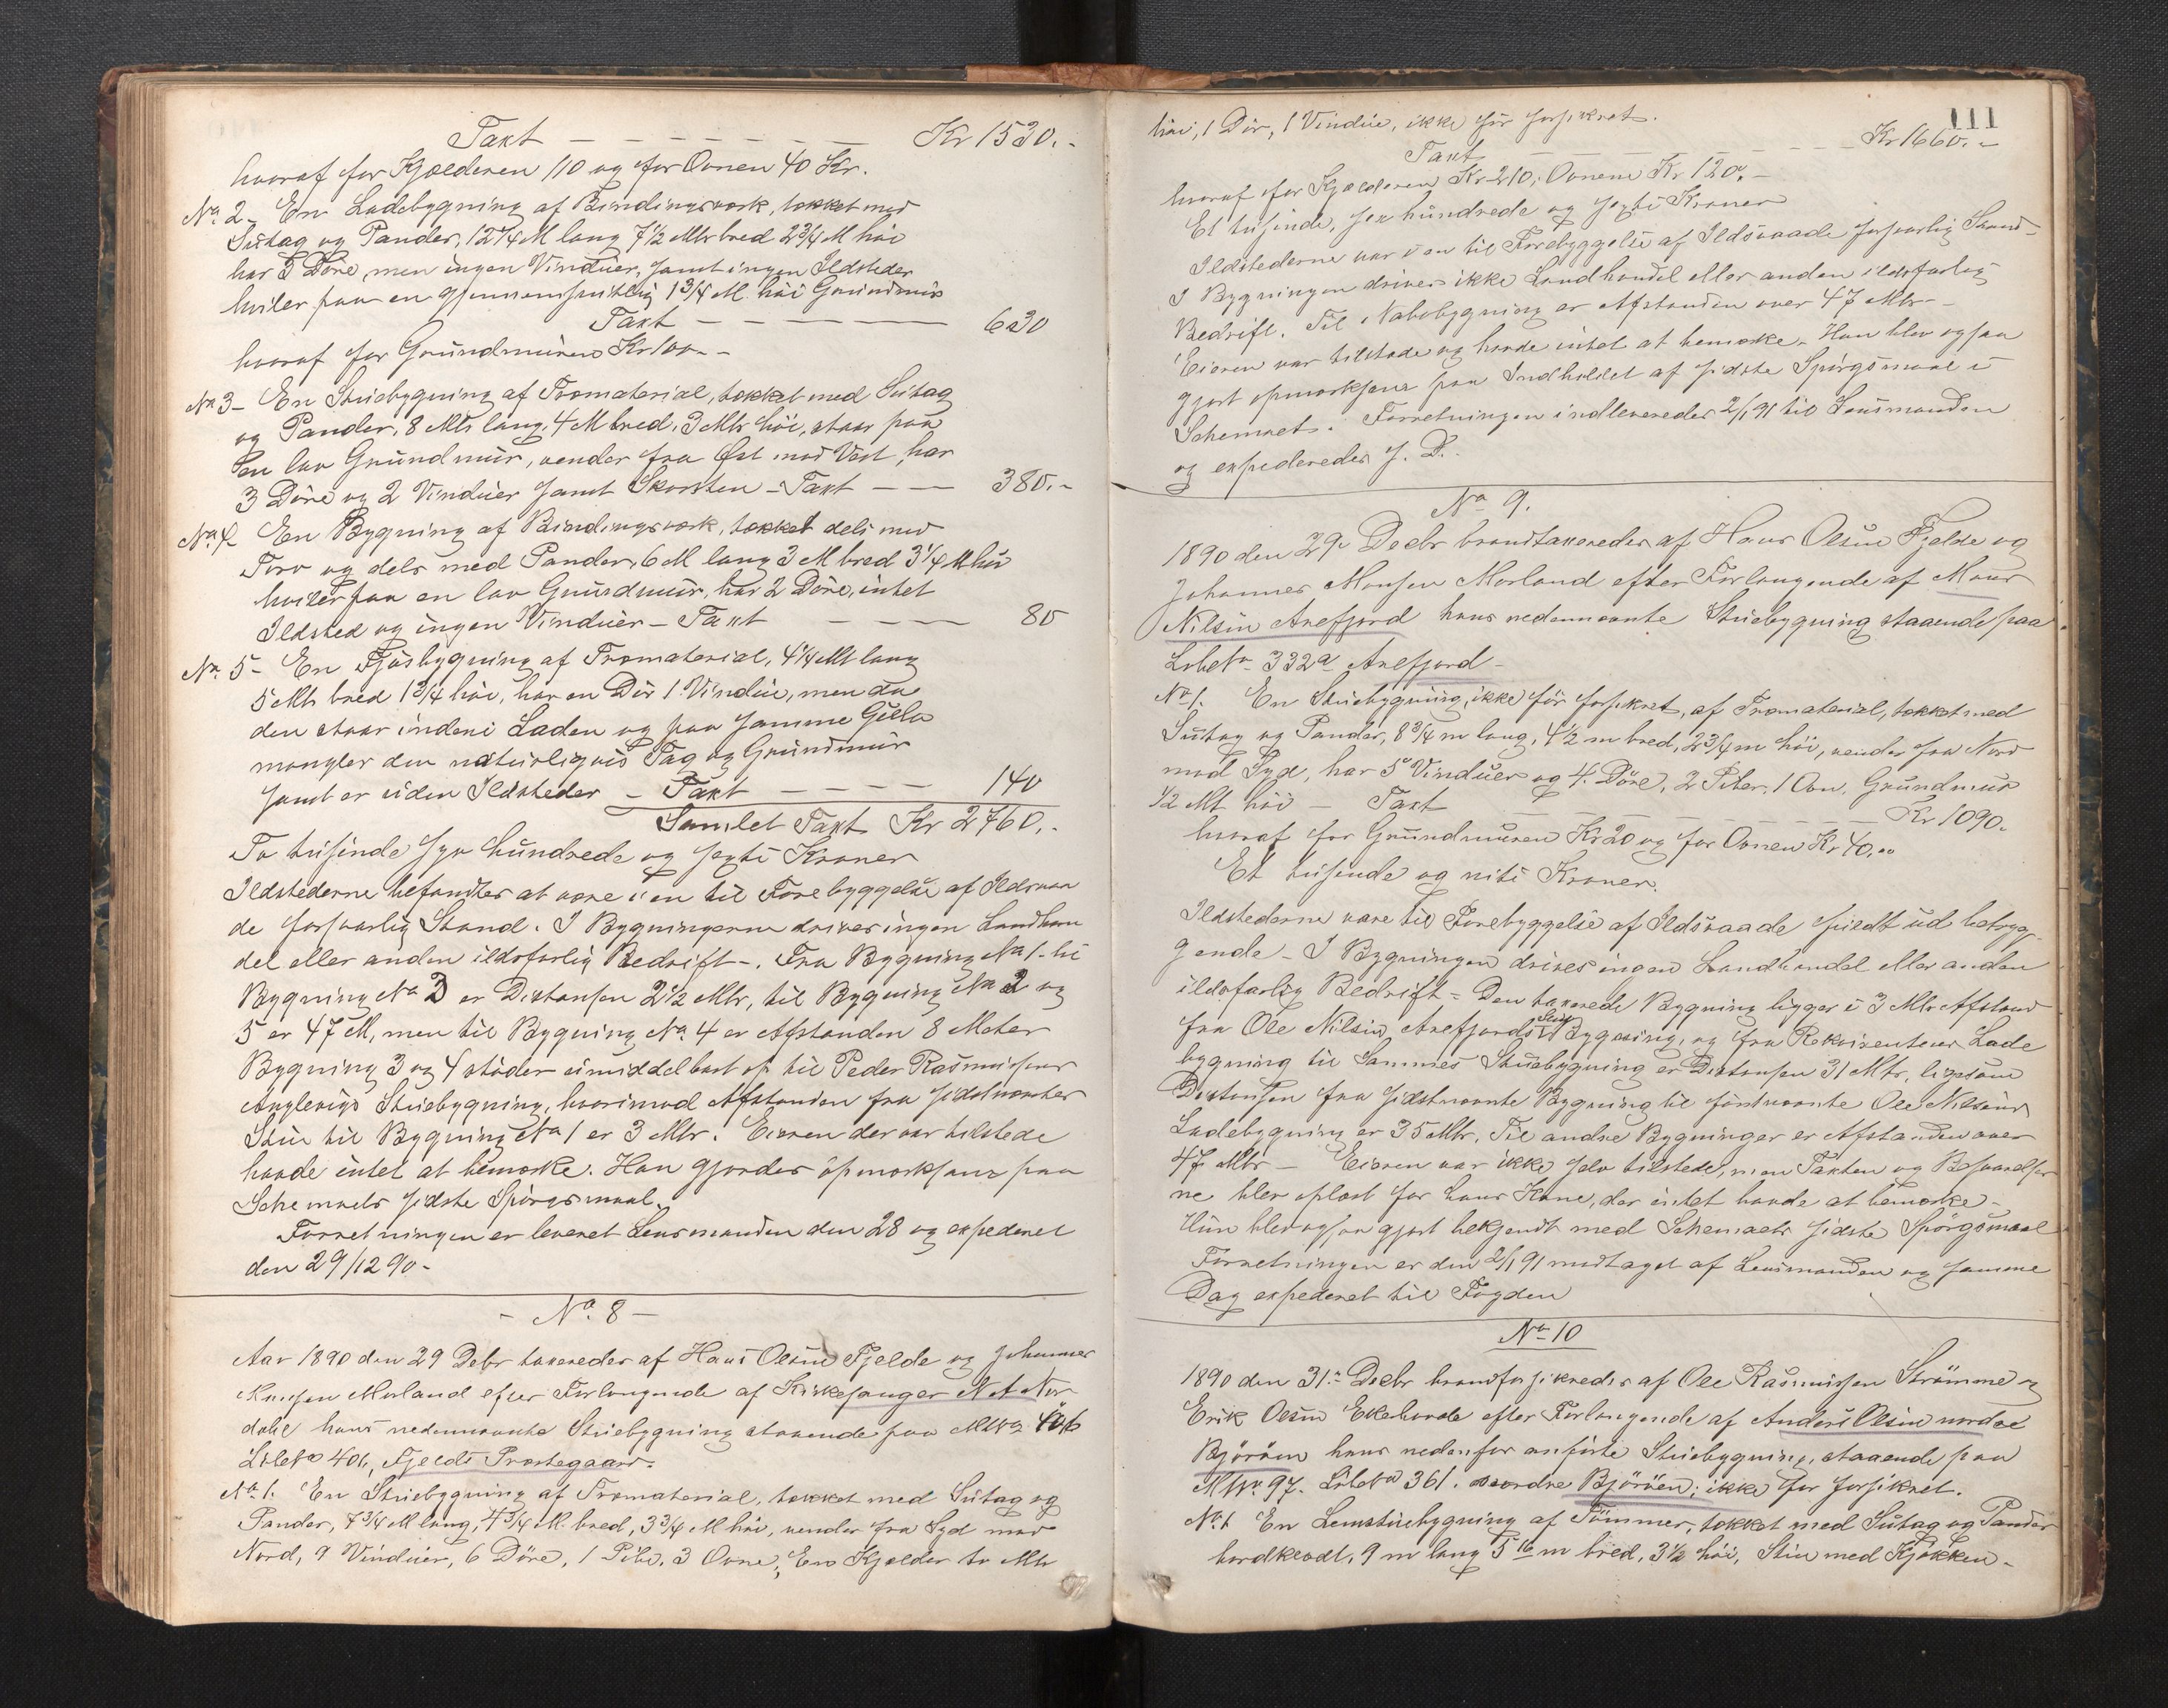 Taxt — — — — — — Kr 1530.-
hvoraf for Kjælderen 110 og for Ovnen 40 Kr.
No 2 - En Ladebygning af Bindingsværk, tækket med
Sutag og Pander, 12 1/4 M lang 7 1/2 Mtr bred 2 3/4 M höi
har 3 Döre, men ingen Vinduer, samt ingen Ildsteder
hviler paa en gjennemsnitlig 1 3/4 M. höi Grundmur
Taxt — — — — — 630
hvoraf for Grundmuren Kr 100.-
No 3 - En Stuebygning af Træmaterial, tækket med Sutag
og Pander, 8 Mtr lang, 4 M bred, 3 Mtr höi, staar paa
en lav Grundmur, vender fra Öst mod Vest, har
3 Döre og 2 Vinduer samt Skorsten - Taxt — — 380.-
No 4 En Bygning af Bindingsværk, tækket dels med
Torv og dels med Pander, 6 M lang 3 M bred 3 1/4 M höi
hviler paa en lav Grundmur, har 2 Döre, intet
Ildsted og ingen Vinduer - Taxt — — — 80
No 5 - En Fjösbygning af Træmaterial, 4 1/4 Mt lang
5 Mtr bred 1 3/4 höi, har en Dör 1 Vindue, men da
den staar indeni Laden og paa samme Gulv
mangler den naturligvis Tag og Grundmur
samt er uden Ildsteder - Taxt — — — — 140
Samlet Taxt Kr 2760.-
To tusinde syv hundrede og sexti Kroner
Ildstederne befandtes at være i en til Forebyggelse af Ildsvaa
de forsvarlig Stand. I Bygningerne drives ingen Landhan
del eller anden ildsfarlig Bedrift -. Fra Bygning No 1 - til
Bygning No 3 er Distansen 2 1/2 Mtr, til Bygning No 2 og
5 er 47 M, men til Bygning No 4 er Afstanden 8 Meter
Bygning 3 og 4 stöder umiddelbart op til Peder Rasmussens
Anglevigs Stuebygning, hvorimod Afstanden fra sidstnævntes
Stue til Bygning No 1 er 3 Mtr. Eieren der var tilstede
havde intet at bemærke. Han gjordes opmærksom paa
Schemaets sidste Spörgsmaal.
Forretningen er leveret Lensmanden den 28 og expederet
den 29/12 90 -
- No 8 -
Aar 1890 den 29 Debr taxeredes af Hans Olsen Fjelde og Johannes
Monsen Morland efter Forlangende af Kirkesanger N A Nor
dahl hans nedennævnte Stuebygning staaende paa MNo 106
LöbeNo 401, Fjelds Præstegaard.
No 1. En Stuebygning af Træmaterial, tækket med Sutag og
Pander, 7 3/4 M lang, 4 3/4 M. bred, 3 3/4 M höi, vender fra Syd mod
Nord, 9 Vinduer, 6 Döre, 1 Pibe, 3 Ovne, En Kjælder to Mtr
111
höi, 1 Dör, 1 Vindue, ikke för forsikret.
Taxt — — — — — — Kr 1660.-
hvoraf for Kjælderen Kr 210, Ovnene Kr 120.-
Et tusinde, sex hundrede og sexti Kroner
Ildstederne var i en til Forebyggelse af Ildsvaade forsvarlig Stand -
I Bygningen drives ikke Landhandel eller anden ildsfarlig
Bedrift. Til Nabobygning er Afstanden over 47 Mtr -
Eieren var tilstede og havde intet at bemærke. Han blev ogsaa
gjort opmærksom paa Indholdet af sidste Spörgsmaal i
Schemaet. Forretningen indleveredes 2/1 91 til Lensmanden
og expederedes s. D.
No 9.
1890 den 29 Decbr brandtaxeredes af Hans Olsen Fjelde og
Johannes Monsen Morland efter Forlangende af Mons
Nilsen Arefjord hans nedennævnte Stuebygning staaende paa
LöbeNo 332a Arefjord -
No 1. En Stuebygning, ikke för forsikret, af Træmaterial, tækket med
Sutag og Pander, 8 3/4 m lang, 4 1/2 m bred, 2 3/4 m höi, vender fra Nord
mod Syd, har 5 Vinduer og 4 Döre, 2 Piber, 1 Ovn, Grundmur
1/2 Mt höi - Taxt — — — — — — Kr 1090.
hvoraf for Grundmuren Kr 20 og for Ovnen Kr 40.00
Et tusinde og niti Kroner.
Ildstederne vare til Forebyggelse af Ildsvaade spildt ud betryg-
gende - I Bygningen drives ingen Landhandel eller anden
ildsfarlig Bedrift = Den taxerede Bygning ligger i 3 Mtr Afstand
fra Ole Nilsen Arefjords Stue Bygning, og fra Rekvirentens Lade
bygning til Sammes Stuebygning er Distansen 31 Mtr, ligesom
Distansen fra sidstnævnte Bygning til förstnævnte Ole Nilsens
Ladebygning er 35 Mtr. Til andre Bygninger er Afstanden over
47 Mtr - Eieren var ikke selv tilstede, men Taxten og Besvarelser
ne blev oplæst for hans Kone, der intet havde at bemærke -
Hun blev ogsaa gjort bekjendt med Schemaets sidste Spörgsmaal
Forretningen er den 2/1 91 modtaget af Lensmanden og samme
Dag expederet til Fogden
No 10
1890 den 31te Decbr brandforsikredes af Ole Rasmussen Strömme og
Erik Olsen Ekerhovde efter Forlangende af Anders Olsen nordre
Björöen hans nedenfor anförte Stuebygning, staaende paa
MNo 97. LöbeNo 361. nordre Björöen; ikke för forsikret.
No 1 En Lemstuebygning af Tömmer, tækket med Sutag og Pander
bordklædt, 9 m lang 5 1/2 m bred, 3 1/2 höi, Stue med Kjökken -